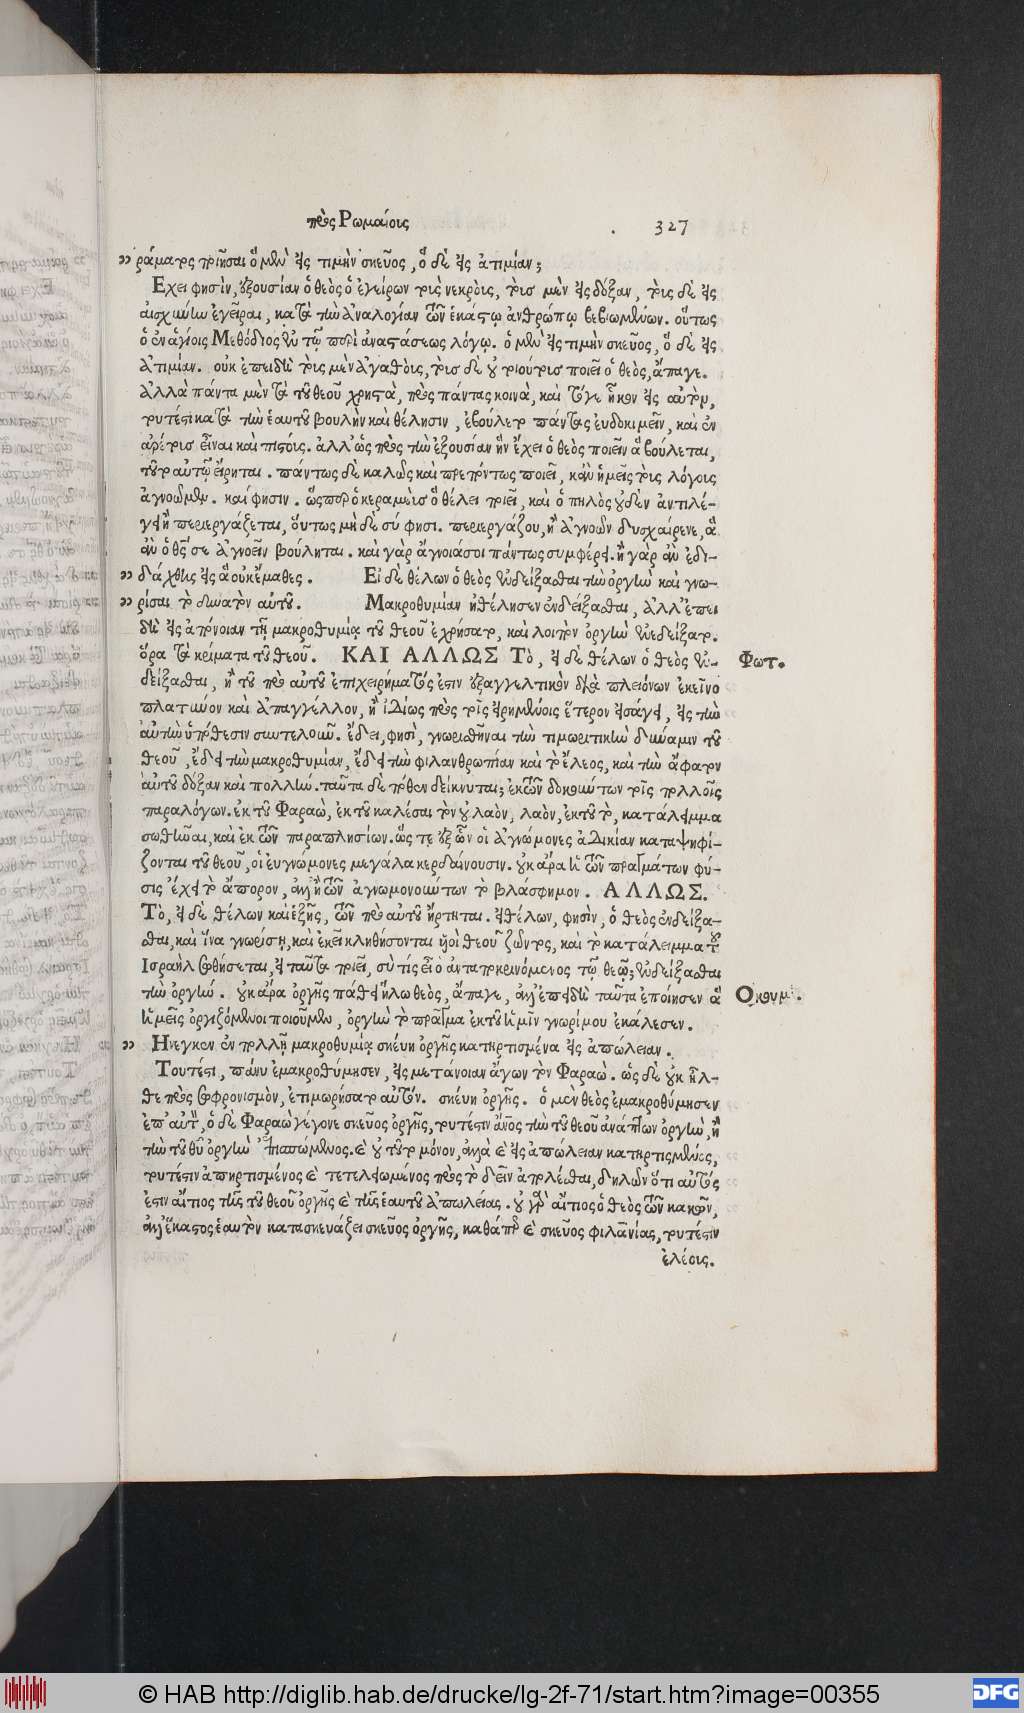 πρὸς Ρωμαίους 327
„ ράματος ποιῆσαι ὃ μὲν εἰς τιμὴν σκεῦος, ὃ δὲ εἰς ἀτιμίαν;
Ἔχει φησὶν, ἐξουσίαν ὁ θεὸς ὁ ἐγείρων τοὺς νεκροὺς, τοὺς μὲν εἰς δόξαν, τοὺς δὲ εἰς
αἰσχύνην ἐγεῖραι, κατὰ τὴν ἀναλογίαν τῶν ἑκάστῳ ἀνθρώπῳ βεβιωμένων. οὕτως
ὁ ἐν ἁγίοις Μεθόδιος ἐν τῷ περὶ ἀναστάσεως λόγῳ. ὁ μὲν εἰς τιμὴν σκεῦος, ὃ δὲ εἰς
ἀτιμίαν. οὐκ ἐπειδὴ τοὺς μὲν ἀγαθοὺς, τοὺς δὲ οὐ τοιούτους ποιεῖ ὁ θεὸς, ἄπαγε.
ἀλλὰ πάντα μὲν τὰ τοῦ θεοῦ χρηστὰ, πρὸς πάντας κοινὰ, καὶ τόγε ἧκον εἰς αὐτὸν,
τουτέστι κατὰ τὴν ἑαυτοῦ βουλὴν καὶ θέλησιν, ἐβούλετο πάντας εὐδοκιμεῖν, καὶ ἐν
αρέτους εἶναι καὶ πιστούς. ἀλλ' ὡς πρὸς τὴν ἐξουσίαν ἣν ἔχει ὁ θεὸς ποιεῖν ἃ βούλεται,
τοῦτο αὐτῷ εἴρηται. πάντως δὲ καλῶς καὶ πρεπόντως ποιεῖ, κἂν ἡμεῖς τοὺς λόγους
ἀγνοῶμεν. καί φησιν. ὥσπερ ὁ κεραμεὺς ὃ θέλει ποιεῖ, καὶ ὁ πηλὸς οὐδὲν ἀντιλέ-
γει ἢ περιεργάζεται, οὕτως μὴ δὲ σύ φησι. περιεργάζου, ἢ ἀγνοῶν δυσχαίραινε, ἃ
ἂν ὁ θς σε ἀγνοεῖν βούληται. καὶ γὰρ ἄγνοιά σοι πάντως συμφέρει. ἢ γὰρ ἂν ἐδι-
„ δάχθης εἰς ἃ οὐκ ἔμαθες. Εἰ δὲ θέλων ὁ θεὸς ἐνδείξασθαι τὴν ὀργὴν καὶ γνω-
„ ρίσαι τὸ δυνατὸν αὐτοῦ. Μακροθυμίαν ἠθέλησεν ἐνδείξασθαι, ἀλλ' ἐπει
δὴ εἰς ἀπόνοιαν τῇ μακροθυμίᾳ τοῦ θεοῦ ἐχρήσατο, καὶ λοιπὸν ὀργὴν ἐνεδείξατο.
ὅρα τὰ κρίματα τοῦ θεοῦ. ΚΑΙ ΑΛΛΩΣ Τὸ, εἰ δὲ θέλων ὁ θεὸς ἐν- Φωτ.
δείξασθαι, ἢ τοῦ πρὸ αὐτοῦ ἐπιχειρήματός ἐστιν ἐξαγγελτικὸν διὰ πλειόνων ἐκεῖνο
πλατῦνον καὶ ἀπαγγέλλον, ἢ ἰδίως πρὸς τοῖς εἰρημένοις ἕτερον εἰσάγει, εἰς τὴν
αὐτὴν ὑπόθεσιν συντελοῦν. ἔδει, φησὶ, γνωρισθῆναι τὴν τιμωρητικὴν δύναμιν τοῦ
θεοῦ, ἔδει τὴν μακροθυμίαν, ἔδει τὴν φιλανθρωπίαν καὶ τὸ ἔλεος, καὶ τὴν ἄφατον
αὐτοῦ δόξαν καὶ πολλήν. ταῦτα δὲ πόθεν δείκνυται; ἐκ τῶν δοκούντων τοῖς πολλοῖς
παραλόγων. ἐκ τοῦ Φαραὼ, ἐκ τοῦ καλέσαι τὸν οὐ λαὸν, λαὸν, ἐκ τοῦ τὸ, κατάλειμμα
σωθῆναι, καὶ ἐκ τῶν παραπλησίων. ὥστε ἐξ ὧν οἱ ἀγνώμονες ἀδικίαν καταψηφί-
ζονται τοῦ θεοῦ, οἱ εὐγνώμονες μεγάλα κερδαίνουσιν. οὐκ ἄρα ἡ τῶν πραγμάτων φύ-
σις ἔχει τὸ ἄπορον, ἀλλ' ἢ τῶν ἀγνωμονούντων τὸ βλάσφημον. ΑΛΛΩΣ.
Τὸ, εἰ δὲ θέλων καὶ ἑξῆς, τῶν πρὸ αὐτοῦ ἤρτηται. εἰ θέλων, φησὶν, ὁ θεὸς ἐνδείξα-
σθαι, καὶ ἵνα γνωρίσῃ, καὶ ἐκεῖ κληθήσονται υἱοὶ θεοῦ ζῶντος, καὶ τὸ κατάλειμμα τοῦ
Ισραὴλ σωθήσεται, εἰ ταῦτα ποιεῖ, σὺ τίς εἶ ὁ ἀνταποκρινόμενος τῷ θεῷ; ἐνδείξασθαι
τὴν ὀργήν. οὐκ ἄρα ὀργῆς πάθει ἥλω θεὸς, ἄπαγε, ἀλλ' ἐπειδὴ ταῦτα ἐποίησεν ἃ Οικουμ.
ἡμεῖς ὀργιζόμενοι ποιοῦμεν, ὀργὴν τὸ πρᾶγμα ἐκ τοῦ ἡμῖν γνωρίμου ἐκάλεσεν.
„ Ηνεγκεν ἐν πολλῇ μακροθυμίᾳ σκεύη ὀργῆς κατηρτισμένα εἰς ἀπώλειαν.
Τουτέστι, πάνυ ἐμακροθύμησεν, εἰς μετάνοιαν ἄγων τὸν Φαραώ. ὡς δὲ οὐκ ἦλ-
θε πρὸς σωφρονισμὸν, ἐτιμωρήσατο αὐτόν. σκεύη ὀργῆς. ὁ μὲν θεὸς ἐμακροθύμησεν
ἐπ' αὐτῷ, ὁ δὲ Φαραὼ γέγονε σκεῦος ὀργῆς, τουτέστιν ἄνος τὴν τοῦ θεοῦ ἀνάπτων ὀργὴν, ἢ
τὴν τοῦ θυ ὀργὴν ἐπισπώμενος. καὶ οὐ τοῦτο μόνον, ἀλλὰ καὶ εἰς ἀπώλειαν κατηρτισμένος,
τουτέστιν ἀπηρτισμένος καὶ τετελειωμένος πρὸς τὸ δεῖν ἀπολέσθαι, δηλῶν ὅτι αὐτός
ἐστιν αἴτιος τῆς τοῦ θεοῦ ὀργῆς καὶ τῆς ἑαυτοῦ ἀπωλείας. οὐ γὰρ αἴτιος ὁ θεὸς τῶν κακῶν,
ἀλλ' ἕκαστος ἑαυτὸν κατασκευάζει σκεῦος ὀργῆς, καθάπερ καὶ σκεῦος φιλανίας, τουτέστιν
ἐλέους.
© HAB http://diglib.hab.de/drucke/lg-2f-71/start.htm?image=00355
DFG